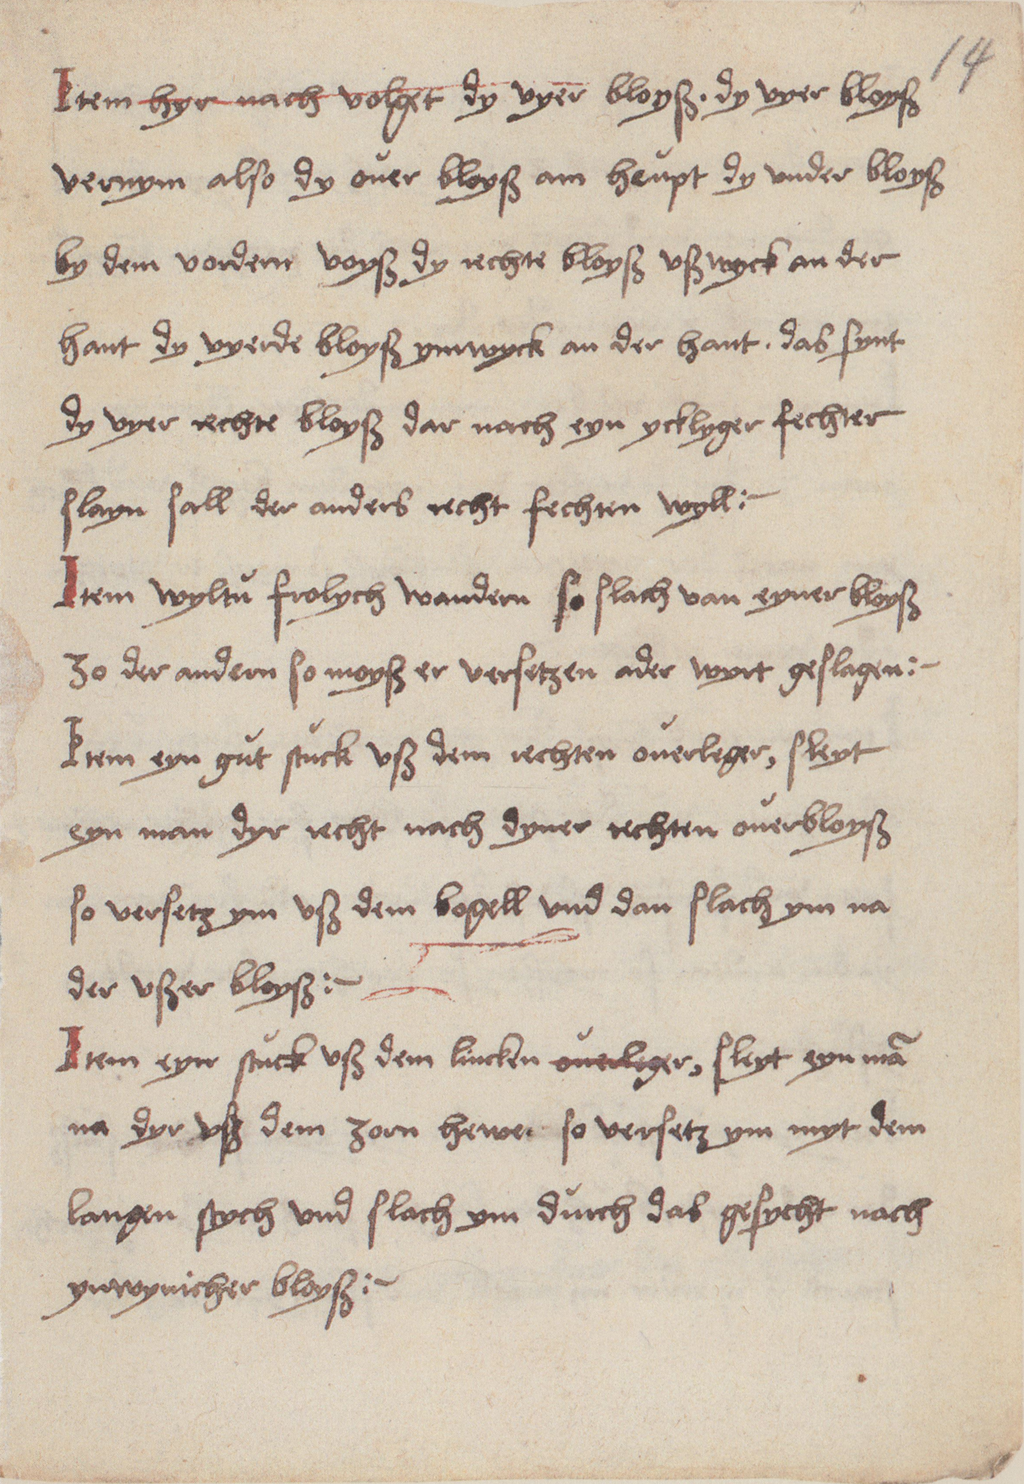 14
Item hyr nach volget dy vyer bloyß · dy vyer bloyß
vernym also dy ouer bloyß am heupt dy vnder bloyß
by dem vordern voyß dy rechte bloyß vßwyck an der
hant dy vyerde bloyß ynwyck an der hant · das synt
dy vyer rechte bloyß dar nach eyn ycklyger fechter
slayn sall der anders recht fechten wyll :~
Item wyltu frolych wandern so slach van eyner bloyß
zo der andern so moyß er versetzen ader wyrt geslagen :~
Item eyn gut stuck vß dem rechten ouerleger, sleyt
eyn man dyr recht nach dyner rechten ouerbloyß
so versetz ym vß dem bogell vnd dan slach ym na
der vßer bloyß :~
Item eyn stuck vß dem lincken ouerleger, sleyt eyn mā
na dyr vß dem zorn hewe · so versetz ym myt dem
langen stych vnd slach ym durch das gesycht nach
ynwynicher bloyß :~